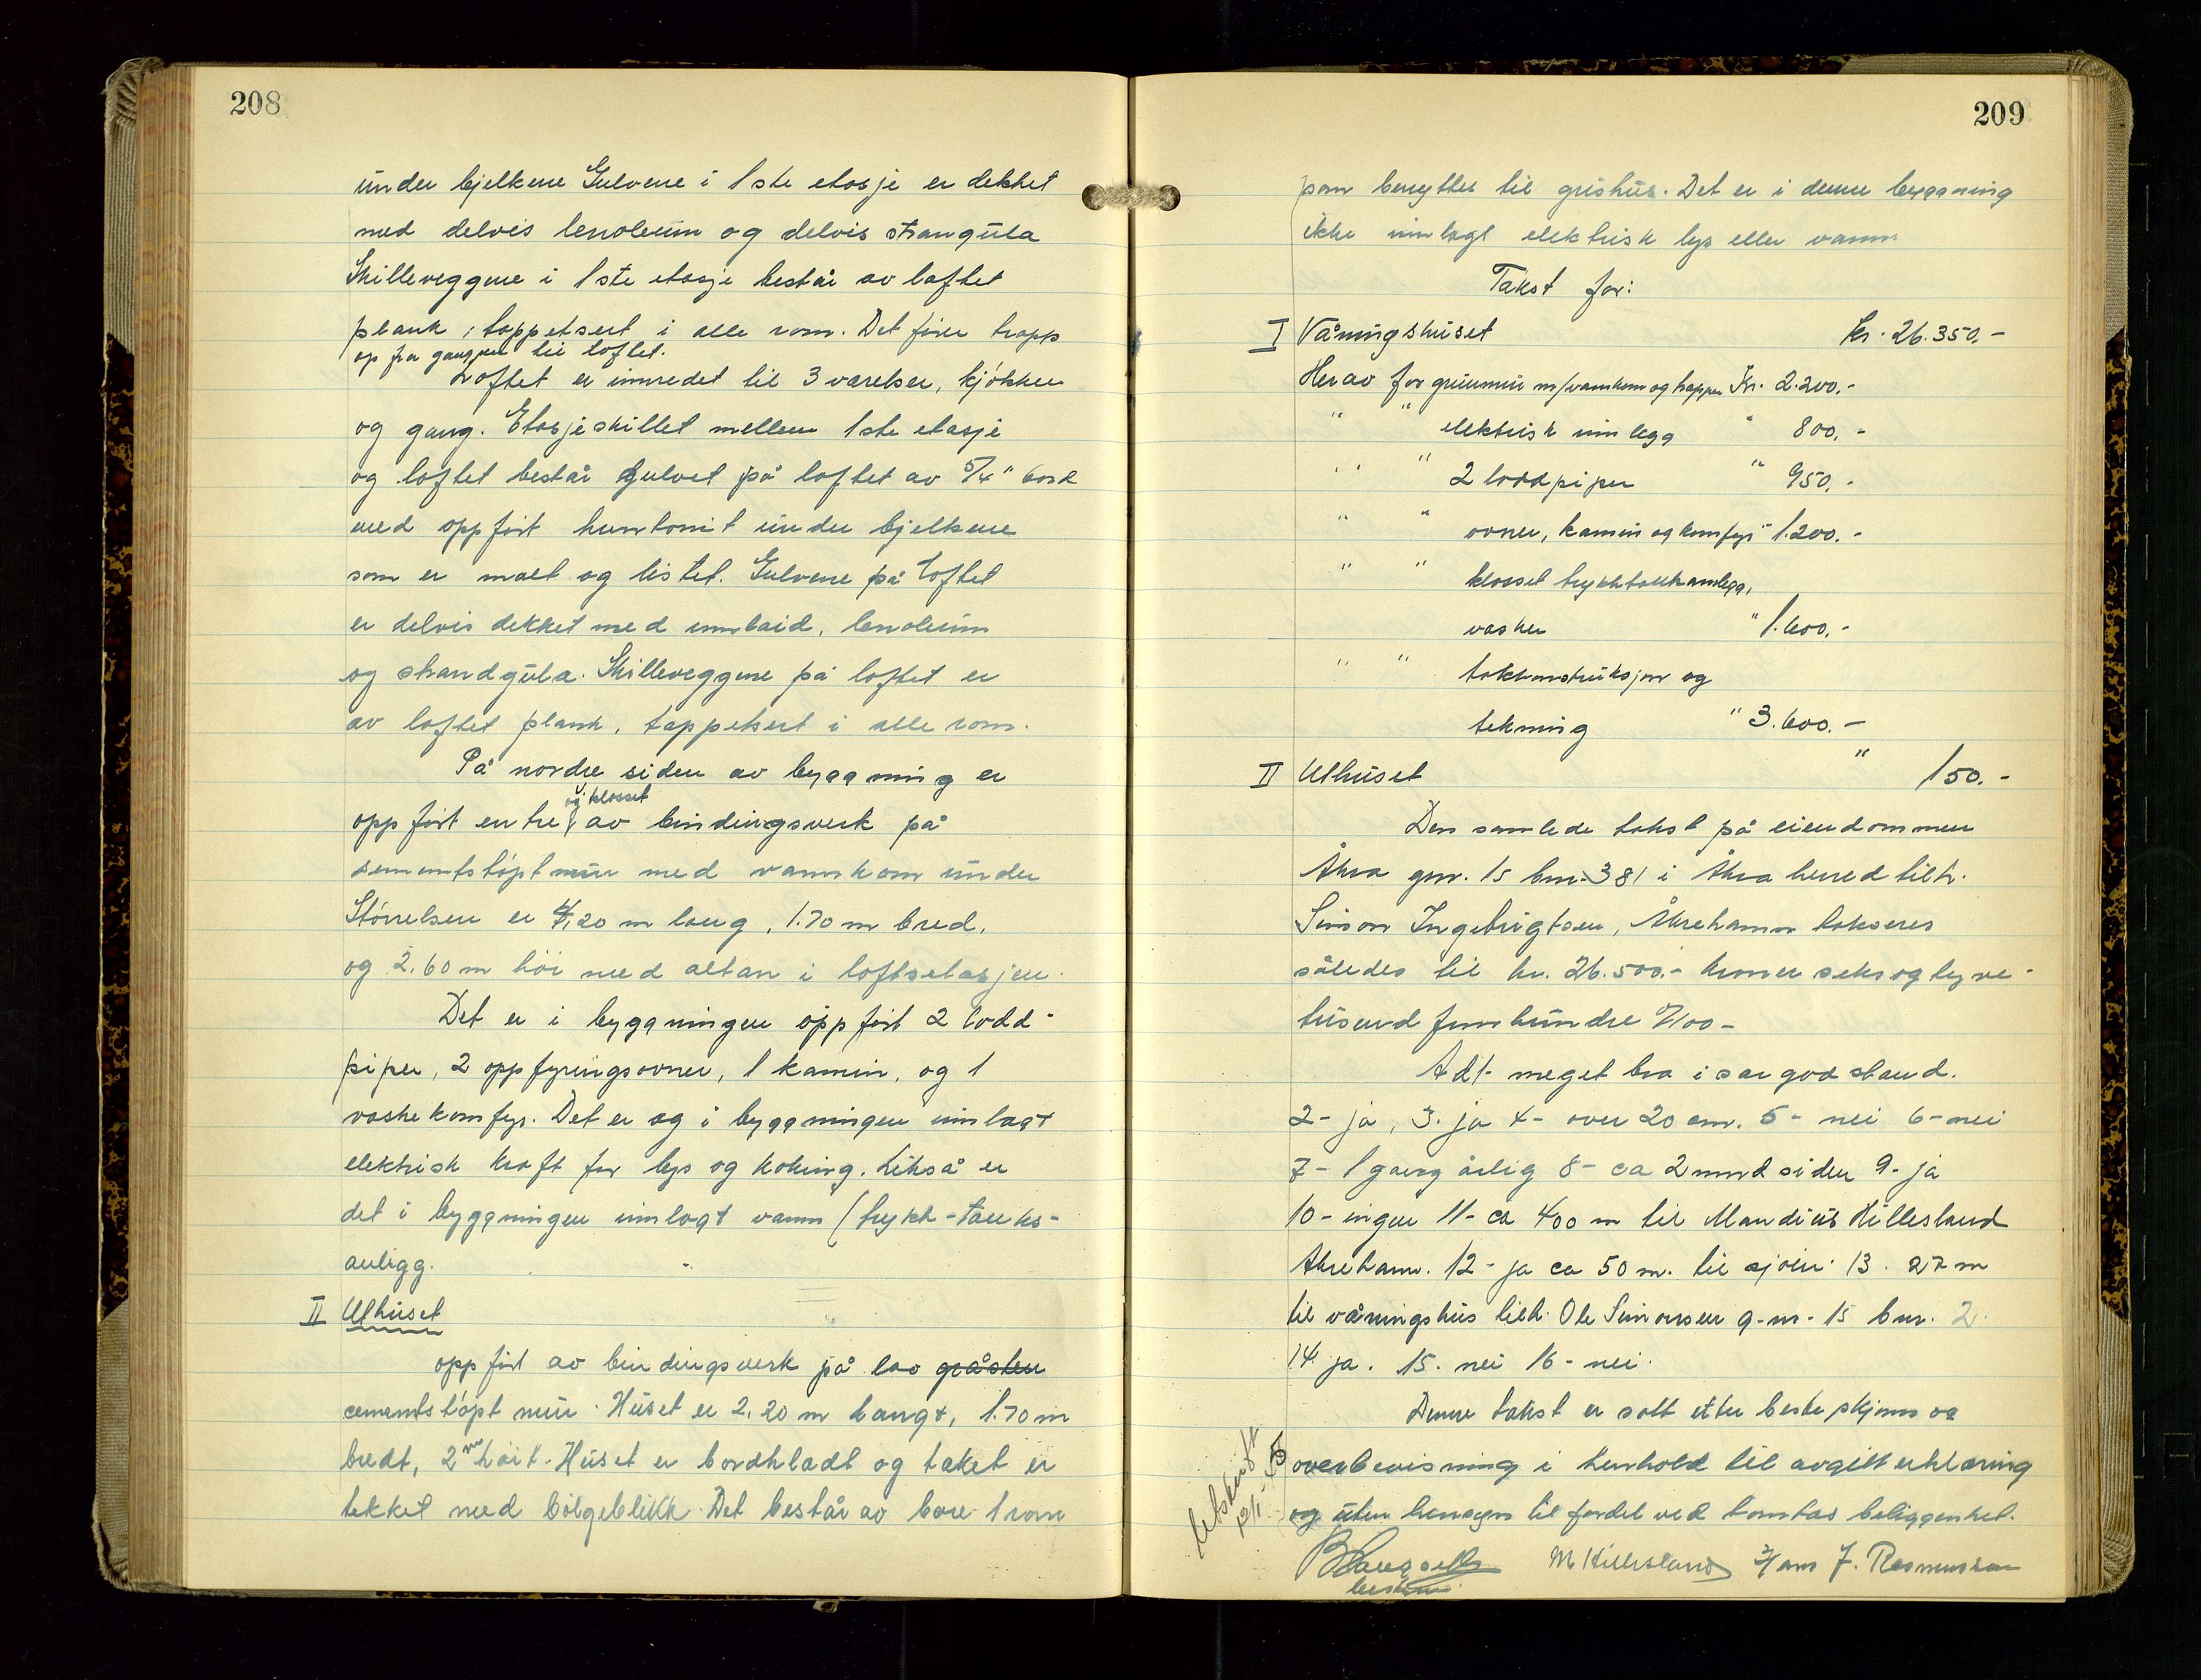 208
under bjelkene Gulvene i 1ste etasje er dekket
med delvis lenoleum og delvis strangula
Skilleveggene i 1ste etasje består av laftet
plank, tappetsert i alle rom. Det fører trapp
op fra gangen til loftet.
Loftet er innredet til 3 værelser, kjøkken
og gang. Etasjeskillet mellem 1ste etasje
og loftet består gulvet på loftet av 5/4" bord
med oppført huntonit under bjelkene
som er malt og listet. Gulvene på loftet
er delvis dekket med innlaid, lenoleum
og strandgula. Skilleveggene på loftet er
av loftet plank, tappetsert i alle rom.
På nordre siden av byggning er
og klosset
oppført entre av bindingsverk på
sementstøpt mur med vannkom under
Størrelsen er 4,20 m lang, 1.70 m bred,
og 2,60 m høi med altan i loftsetasjen.
Det er i byggningen oppført 2 lodd-
piper, 2 oppfyringsovner, 1 kamin, og 1
vaskekomfyr. Det er og i byggningen innlagt
elektrisk kraft for lys og koking. Likså er
det i byggningen innlagt vann (trykk-tanks-
anlegg.
II Uthuset
oppført av bindingsverk på lav gråsten
cementstøpt mur. Huset er 2,20 m langt, 1.70 m
bredt, 2 m høit. Huset er bordkladt og taket er
tekket med bølgeblikk. Det består av bare 1 rom
209
som benyttes til grishus. Det er i denne byggning
ikke innlagt elektrisk lys eller vann.
Takst for:
I Våningshuset kr. 26.350.-
Herav for grunmur m/vannkom og trapper Kr. 2.200.-
" " elektrisk innlegg " 800.-
" " 2 loddpiper " 950.-
" " ovner, kamin og komfyr " 1.200.-
" " klosset trykktankanlegg,
vasker " 1.600.-
" " takkonstruksjon og
tekning " 3.600.-
II Uthuset " 150.-
Den samlede takst på eiendommen
Åkra gnr. 15 bnr. 381 i Åkra herred tilh.
Simon Ingebrigtsen, Åkrehamn takseres
således til kr. 26.500.- kroner seksogtyve-
tusend femhundre 0/100-
Ad 1- meget bra i sær god stand.
2- ja, 3. ja 4- over 20 cm. 5- nei 6- nei
7- 1 gang årlig 8- ca 2 mnd siden 9- ja
10- ingen 11- ca 400 m til Mandius Hillesland
Åkrehamn. 12- ja ca 50 m. til sjøen. 13. 27 m
til våningshus tilh. Ole Simonsen g-nr- 15 bnr. 2.
14. ja. 15. nei 16- nei.
Denne takst er satt etter beste skjønn og
overbevisning i henhold til avgitt erklæring
og uten hensyn til fordel ved tomtas beliggenhet.
Utskrift
M Hillesland Hans J. Rasmussen